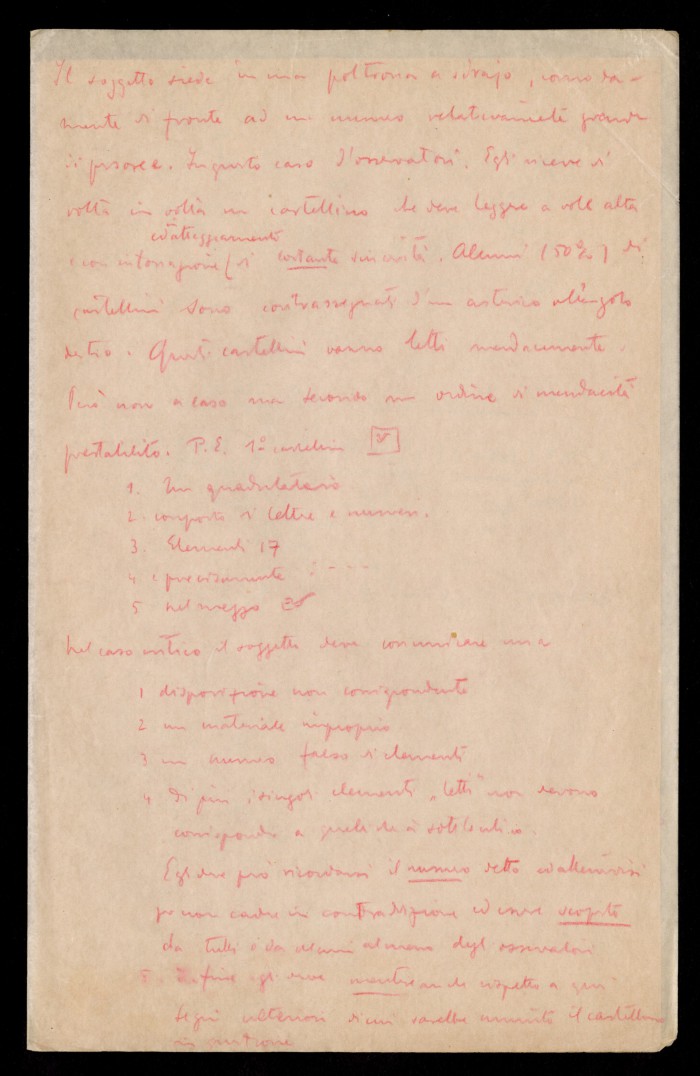 Il soggetto siede in una poltrona a sdrajo, comoda-
mente di fronte ad un numero relativamente grande
di persone. In questo caso d'osservatori. Egli riceve di
volta in volta un cartellino che deve leggere a voce alta
ed atteggiamento
e con intonazione (di costante sincerità. Alcuni (50%) di
cartellini sono contrassegnati d'un asterisco all'angolo
destro. Questi cartellini vanno letti mendacemente.
Però non a caso ma secondo un ordine di mendacità
prestabilito. P.E. 1° cartellino
1. Un quadrilatero
2. composto di lettere e numeri.
3. Elementi 17
4 e precisamente : - - -
5 nel mezzo
Nel caso critico il soggetto deve comunicare una
1 disposizione non corrispondente
2 un materiale improprio
3 un numero falso di elementi
4 Di più i singoli elementi "letti" non devono
corrispondere a quelli che
Egli deve però ricordarsi il numero detto ed attenervisi
per non cadere in contraddizione ed essere scoperto
da tutti o da alcuni almeno degli osservatori
5. Infine egli deve mentire anche rispetto a quei
segni ulteriori di cui sarebbe munito il cartellino
in questione